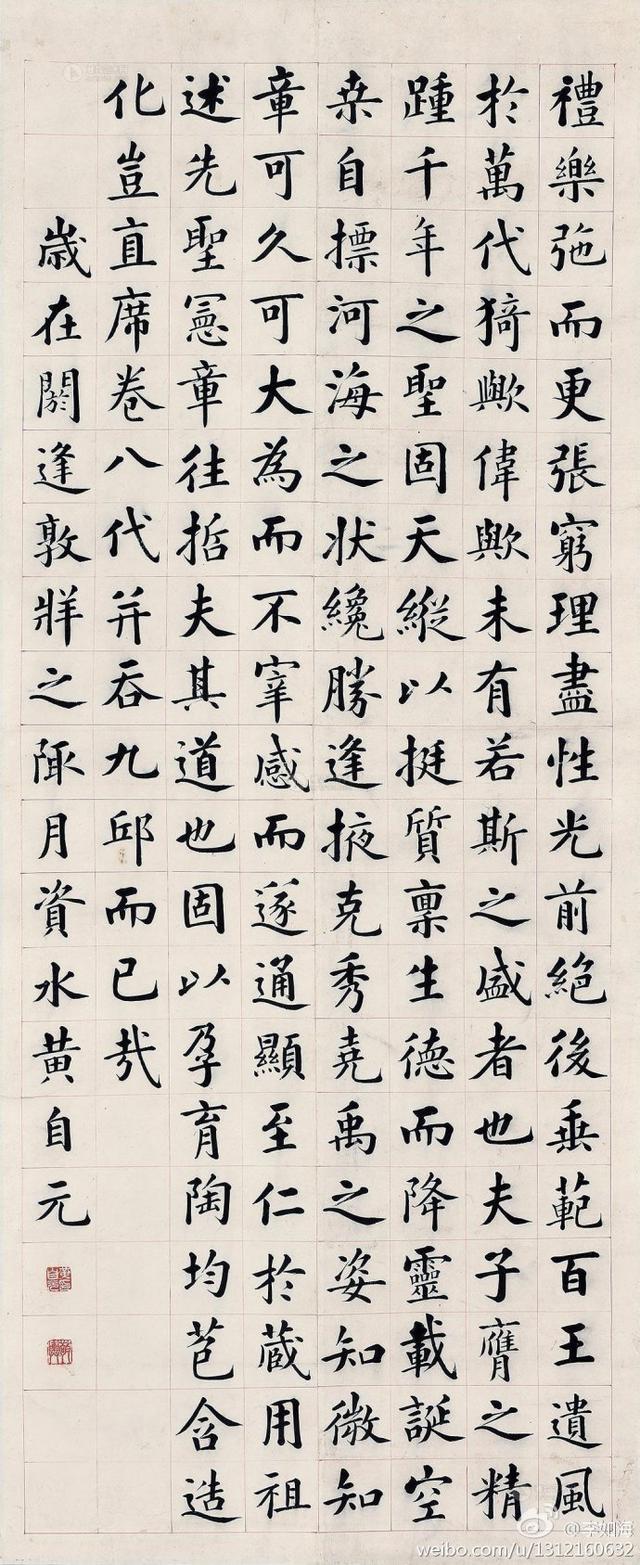 禮樂弛而更張窮理盡性光前絕後垂範百王遺風
於萬代猗歟偉歟未有若斯之盛者也夫子膺之精
踵千年之聖固天縱以挺質稟生德而降靈載誕空
桒自摽河海之状纔勝逢掖克秀堯禹之姿知微知
章可久可大為而不宰感而遂通顯至仁於蔵用祖
述先聖憲章往哲夫其道也固以孕育陶均苞含造
化豈直席卷八代并吞九邱而已哉
歲在閼逢敦牂之陬月資水黃自元
@李如海
weibo.com/u/1312160632